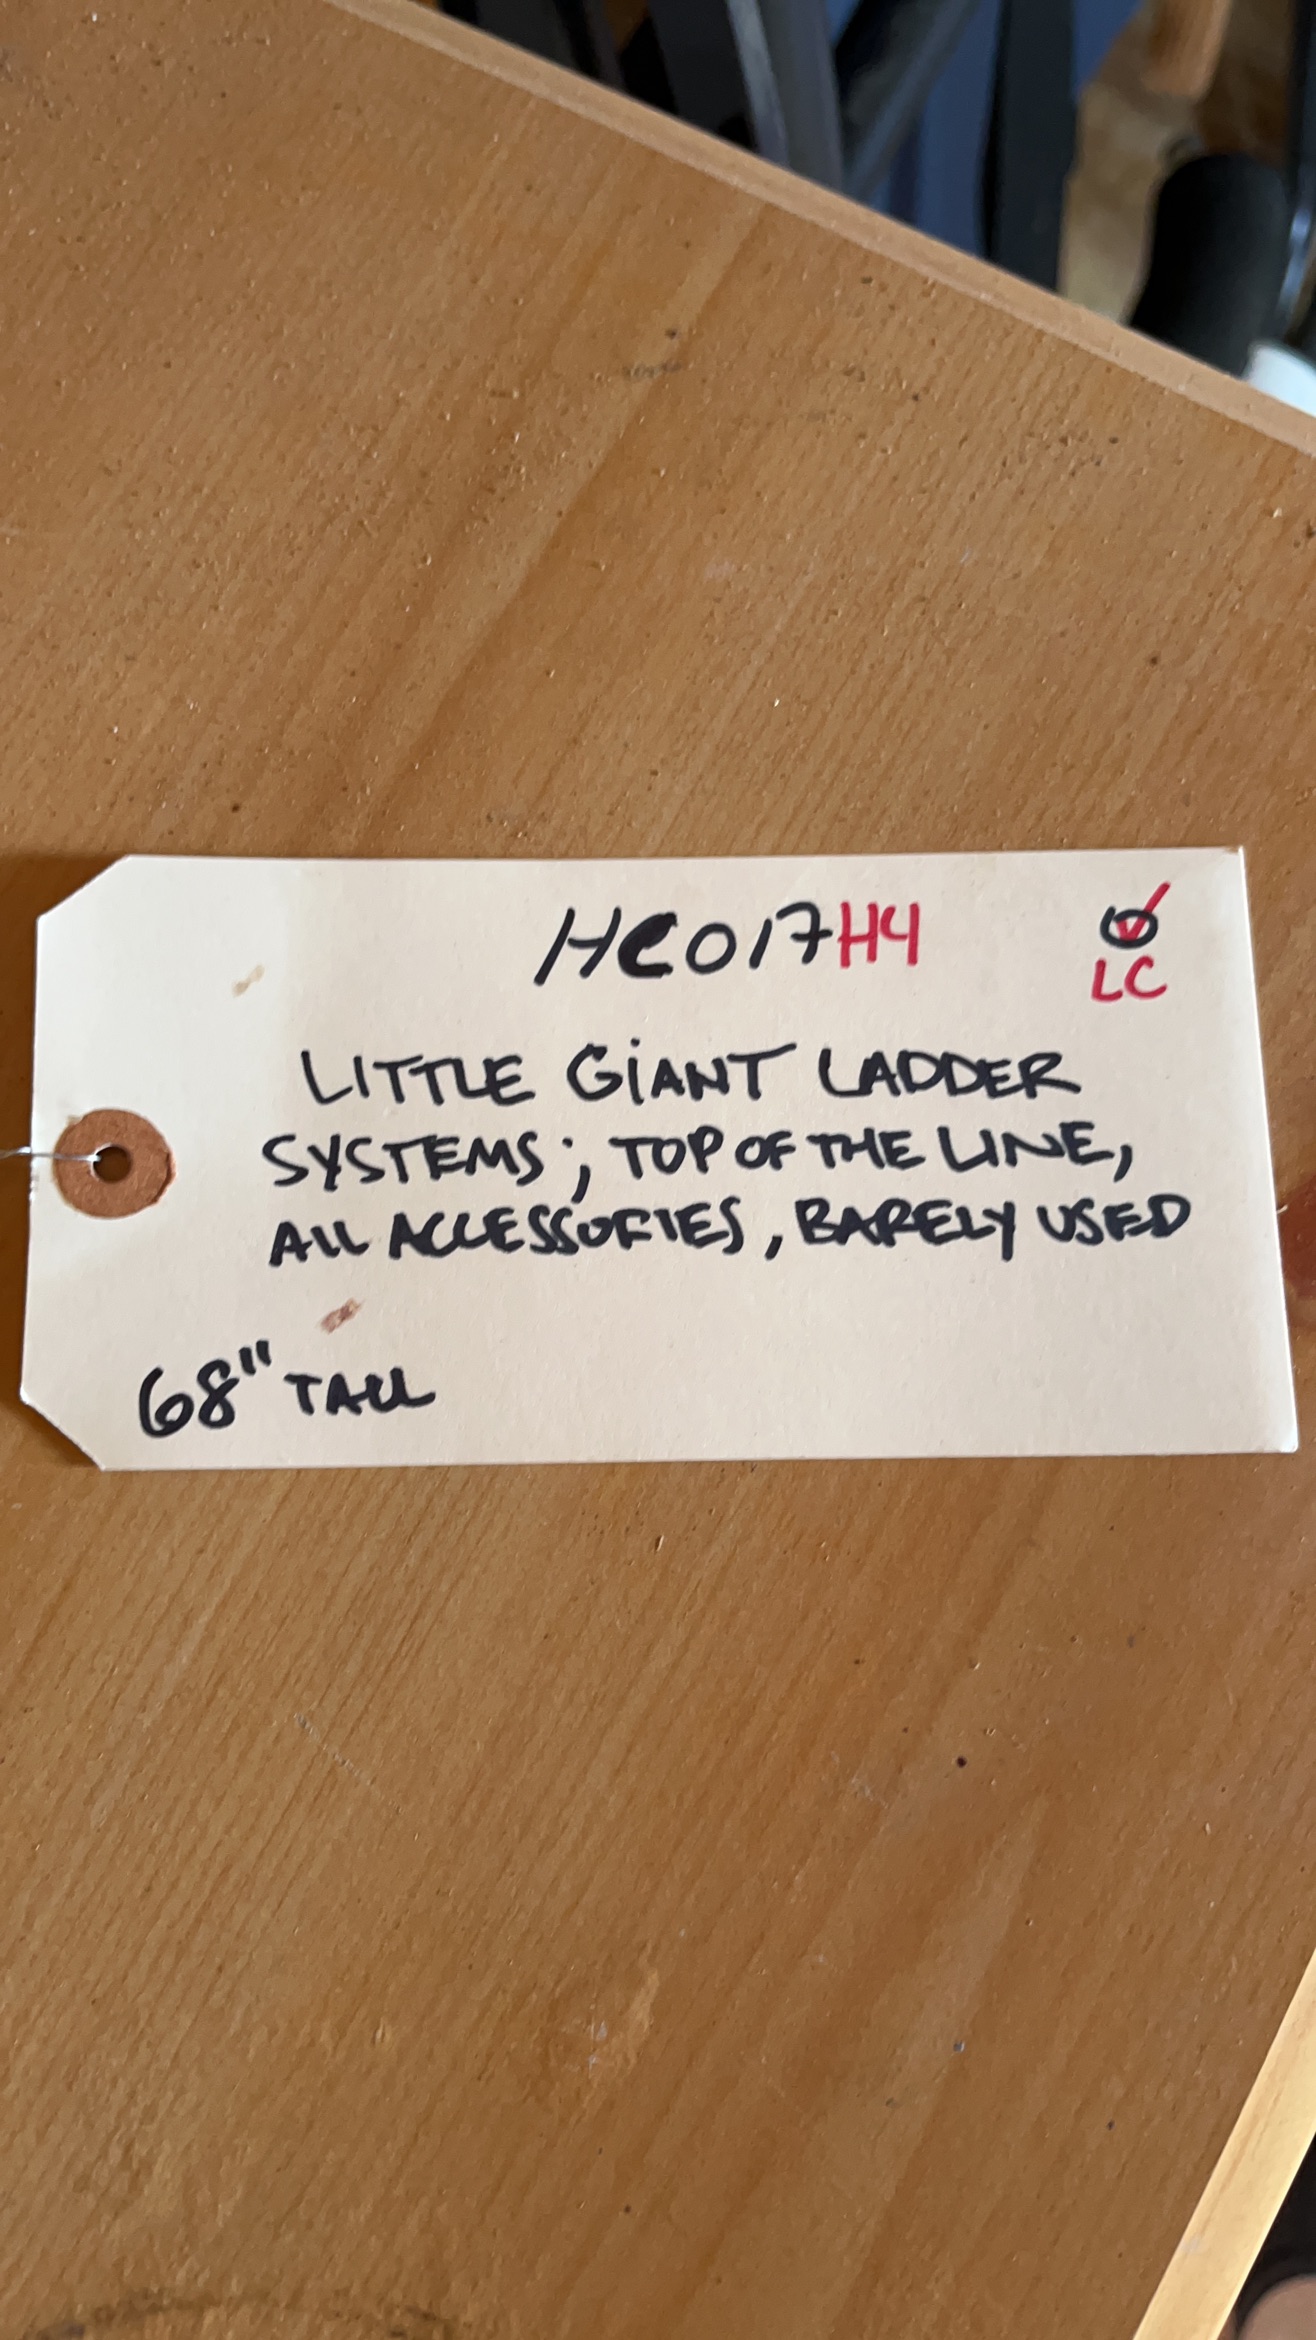 HC017H4
LC
LITTLE GIANT LADDER
SYSTEMS; TOP OF THE LINE,
ALL ACCESSORIES, BARELY USED
68" TALL